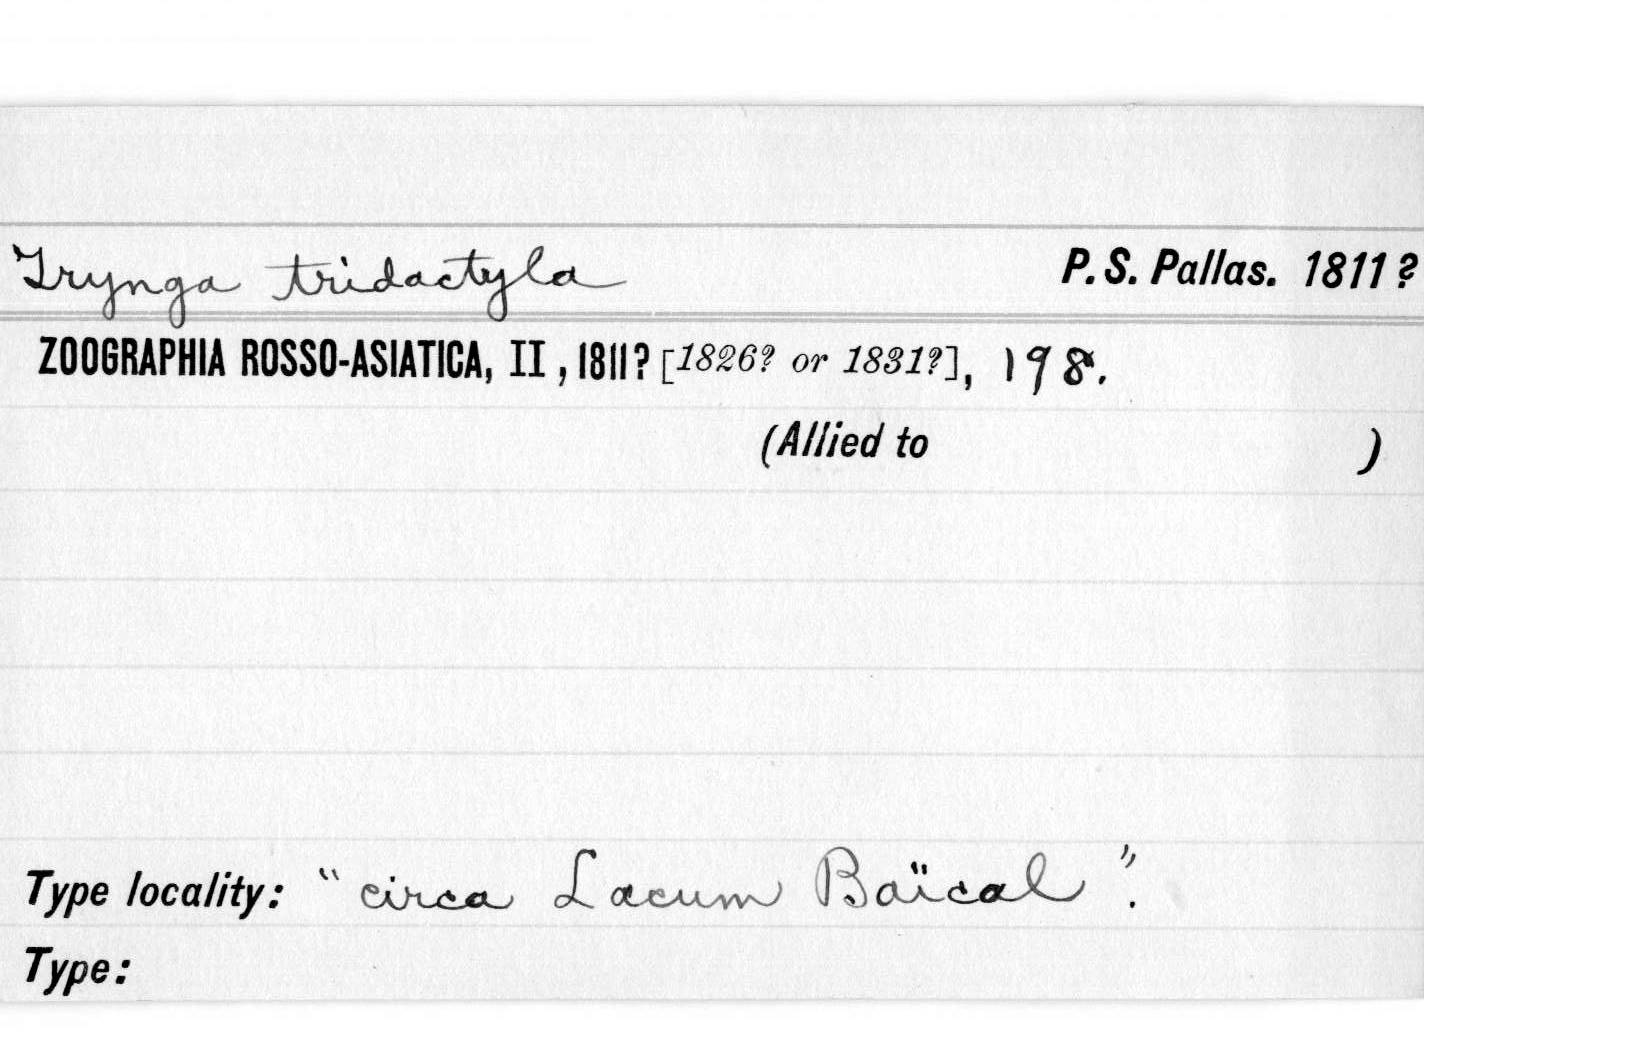 Trynga tridactyla P. S. Pallas. 1811?
ZOOGRAPHIA ROSSO-ASIATICA, II, 1811? [1826? or 1831?], 198.
(Allied to )
Type locality: "circa Lacum Baïcal".
Type: